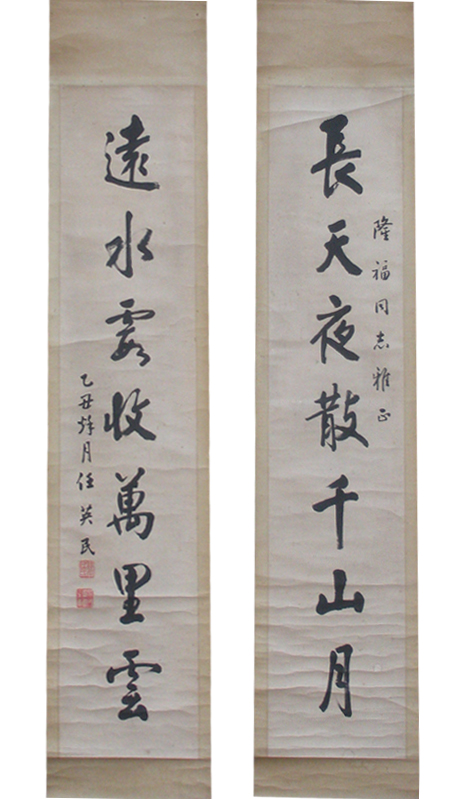 隆福同志雅正
長天夜散千山月
遠水霞收萬里雲
乙丑烊月任英民